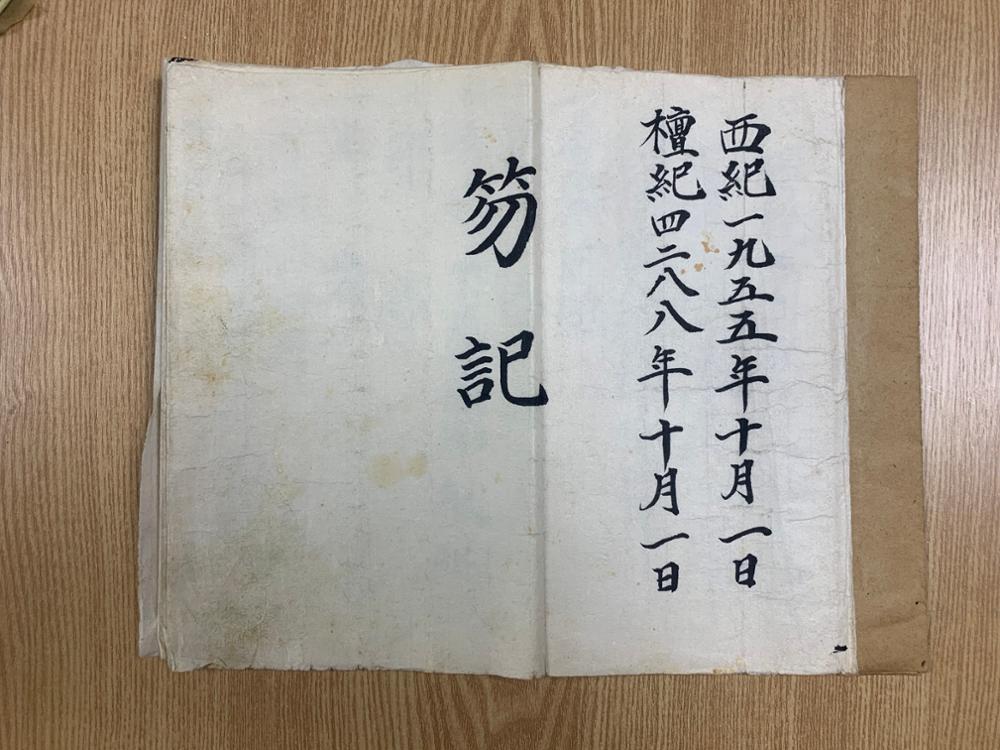 西紀一九五五年十月一日
檀紀四二八八年十月一日
笏記